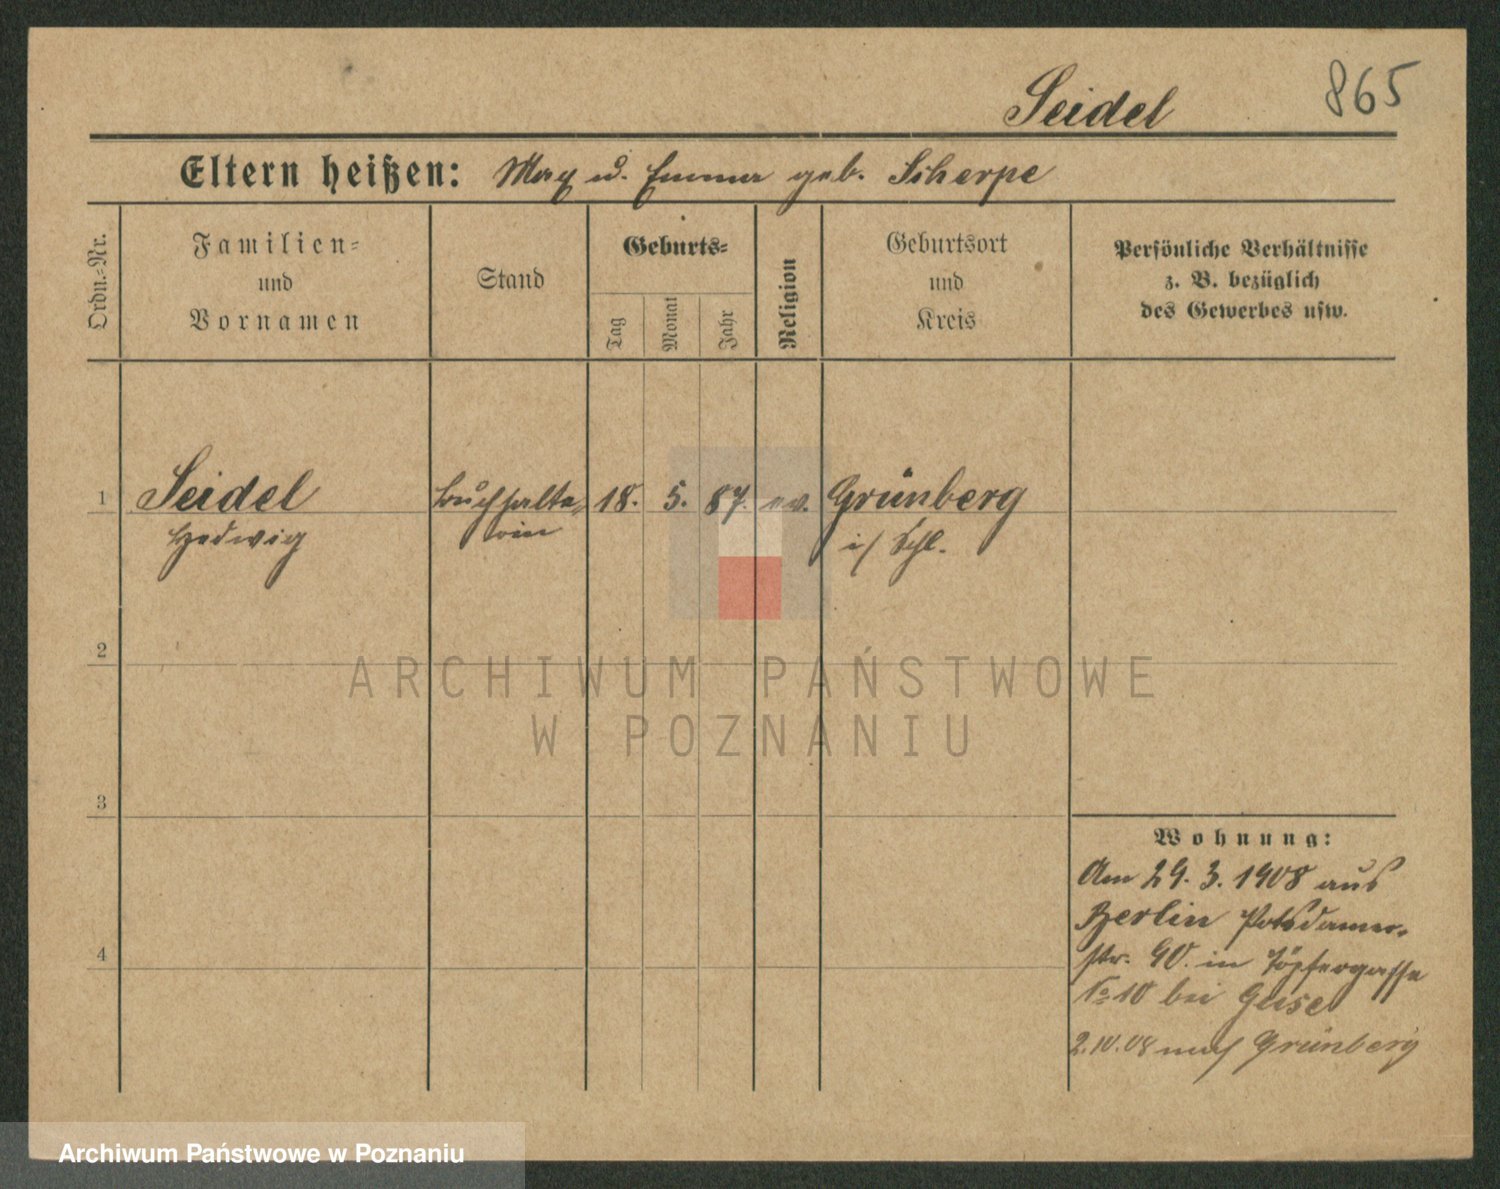 Seidel
865
Eltern heißen: Max u. Emma geb. Scherpe
Ordn.-Nr.
Familien-
und
Vornamen
Stand
Geburts-
Tag
Monat
Jahr
Religion
Geburtsort
und
Kreis
Persönliche Verhältnisse
z. B. bezüglich
des Gewerbes usw.
1 Seidel Buchhalte- 18. 5. 87. ev. Grünberg
Hedwig rin i/ Schl.
2
3
4
ARCHIWUM PAŃSTWOWE
W POZNANIU
Wohnung:
Am 29. 3. 1908 aus
Berlin Potsdamer-
str. 90. in Töpfergasse
No 10 bei Geisel
2.10.08 nach Grünberg
Archiwum Państwowe w Poznaniu